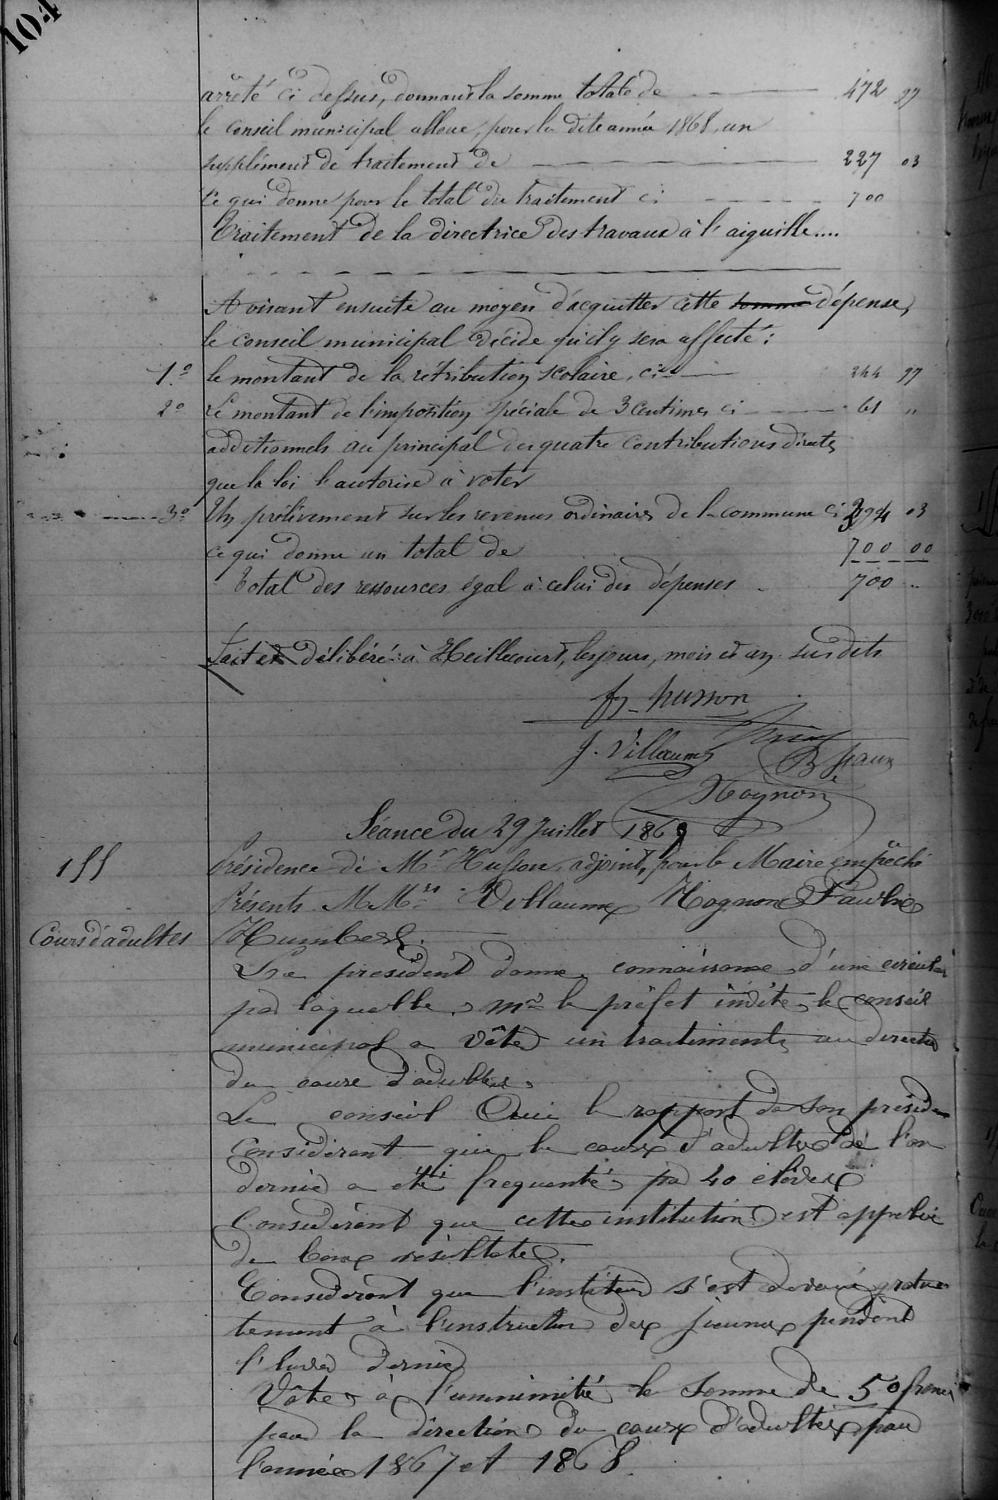 104
arrêté ci dessus, donnant la somme totale de 472 97
le conseil municipal alloue, pour la dite année 1868, un
supplément de traitement de 227 03
Ce qui donne pour le total du traitement ci 700
Traitement de la directrice des travaux à l'aiguille....
Avisant ensuite au moyen d'acquitter cette somme dépense,
le conseil municipal décide qu'il y sera affecté :
1.° le montant de la rétribution scolaire, ci 244 97
2° Le montant de l'imposition spéciale de 3 Centimes ci 61 "
additionnels au principal des quatre contributions directes
que la loi l'autorise à voter
3° Un prélèvement sur les revenus ordinaires de la commune ci 394 03
ce qui donne un total de 700 00
Total des ressources égal à celui des dépenses 700 "
Fait et délibéré à Heillecourt, les jours, mois et an susdits
fs husson
J. Villaume
Hognon
Séance du 29 Juillet 1869
155 Présidence de Mr Husson, adjoint, pour le Maire empêché
Présents M Mrs Villaume Hognon
Cours d'adultes Humbert.
Le president donne connaissance d'une circulai
par laquelle mr le préfet invite le conseil
municipal a vôter un traitements au directeu
du cours d'adultes.
Le conseil Ouie le rapport de son préside
Considerant que le cours d'adultes de l'an
dernier a été frequenté par 40 elèves
Considèrant que cette institution est appelée
de bons résultats.
Considerant que l'instituteur s'est devoué gratui
tement à l'instruction des jeunes pendant
l'hiver dernier
Vôte à l'unnimité la somme de 50 francs
pour la direction du cours d'adultes pour
l'année 1867 et 1868.